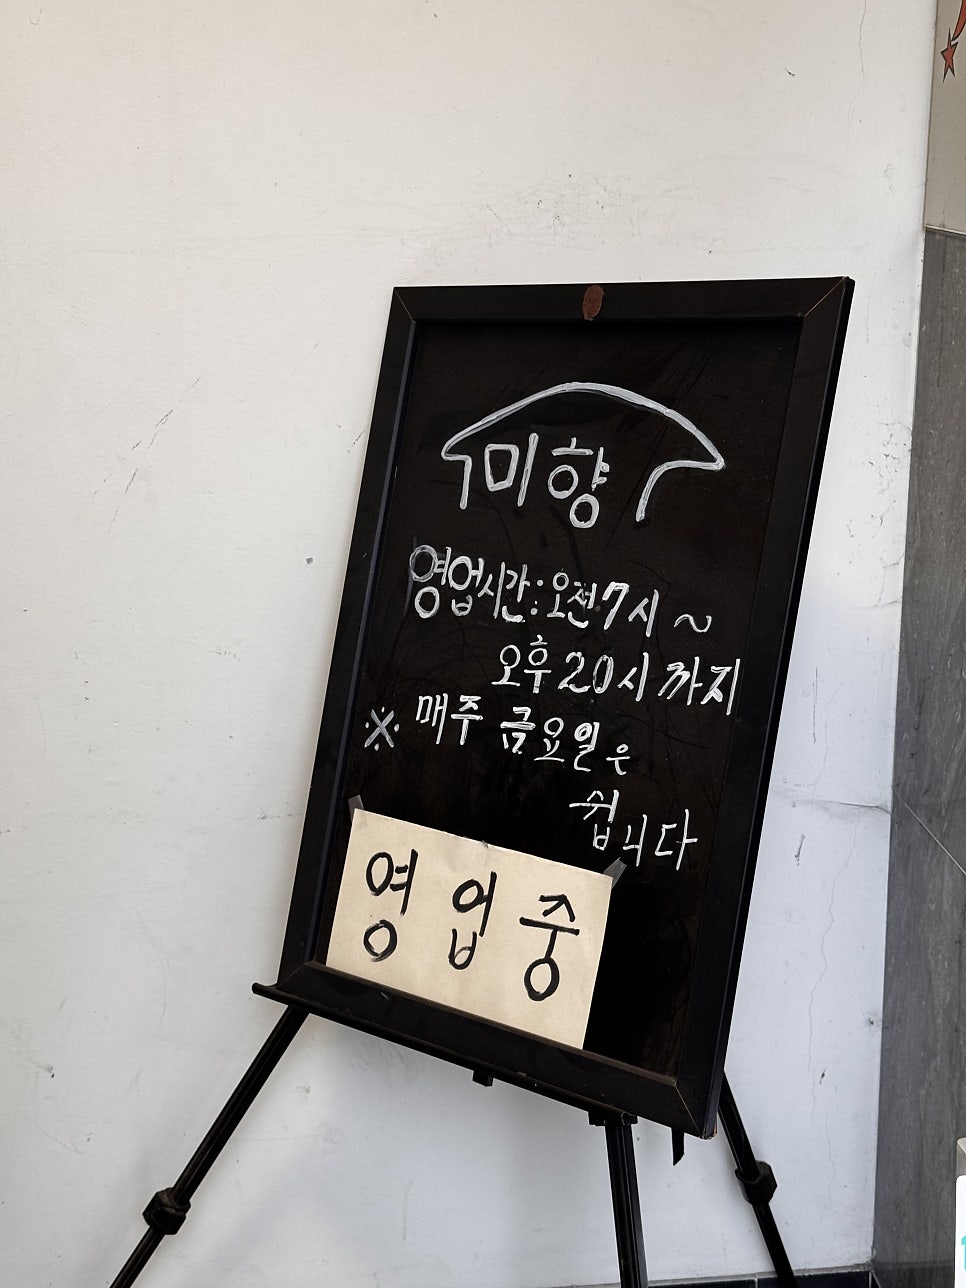 미향
영업시간:오전7시 ~
오후 20시 까지
※ 매주 금요일은
쉽니다
영업중